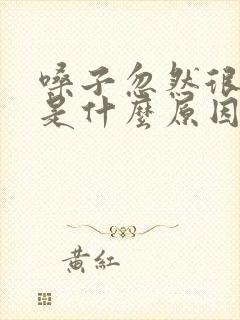 嗓子忽然很
是什麼原因
黃紅